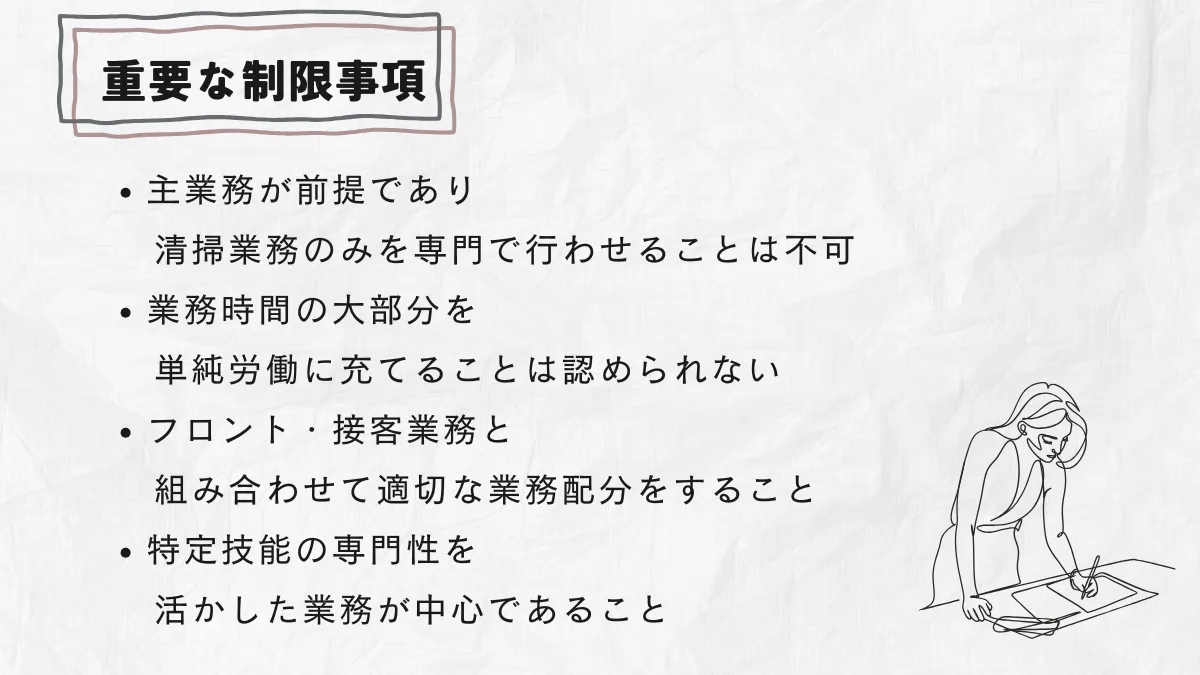 重要な制限事項
• 主業務が前提であり
清掃業務のみを専門で行わせることは不可
• 業務時間の大部分を
単純労働に充てることは認められない
• フロント・接客業務と
組み合わせて適切な業務配分をすること
• 特定技能の専門性を
活かした業務が中心であること